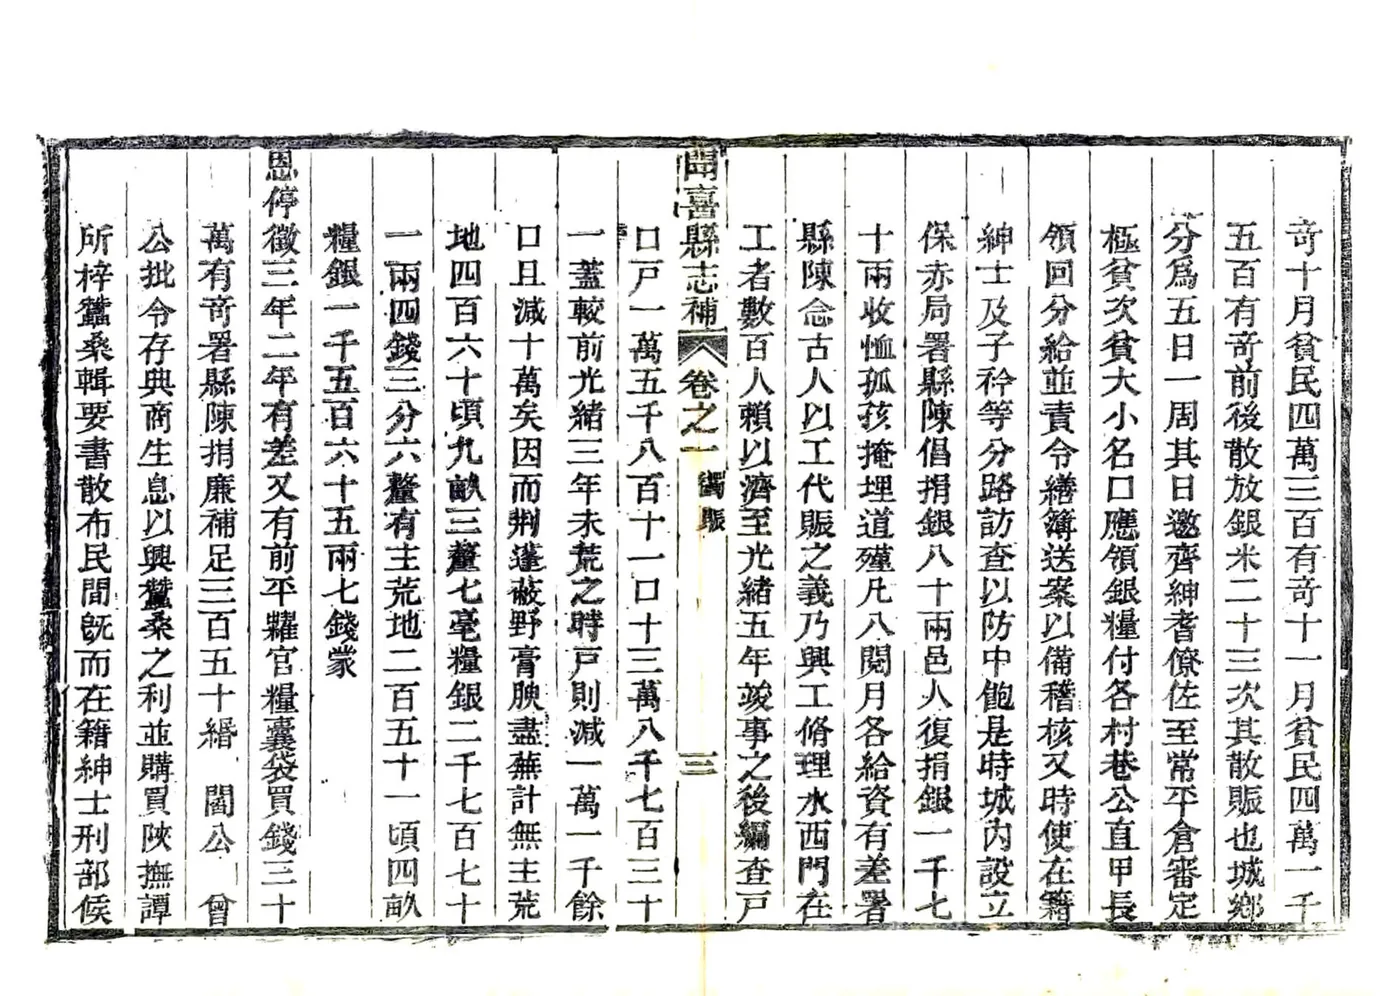 竒十月貧民四萬三百有竒十一月貧民四萬一千
五百有竒前後散放銀米二十三次其散賑也城鄉
分爲五日一周其日邀齊紳耆僚佐至常平倉審定
極貧次貧大小名口應領銀糧付各村巷公直甲長
領回分給並責令繕簿送案以備稽核又時使在籍
紳士及子衿等分路訪查以防中飽是時城內設立
保赤局署縣陳倡捐銀八十兩邑人復捐銀一千七
十兩收恤孤孩掩埋道殣凡八閱月各給資有差署
縣陳念古人以工代賑之義乃興工脩理水西門在
工者數百人賴以濟至光緒五年竣事之後編查戶
聞喜縣志補 卷之一 蠲賑 三
口戸一萬五千八百十一口十三萬八千七百三十
一蓋較前光緒三年未荒之時戸則减一萬一千餘
口且减十萬矣因而荆蓬蔽野膏腴盡蕪計無主荒
地四百六十頃九畝三釐七毫糧銀二千七百七十
一兩四錢三分六釐有主荒地二百五十一頃四畝
糧銀一千五百六十五兩七錢蒙
恩停徵三年二年有差又有前平糶官糧囊袋買錢三十
萬有竒署縣陳捐廉補足三百五十緡 閻公 曾
公批令存典商生息以興蠶桑之利並購買陝撫譚
所梓蠶桑輯要書散布民間旣而在籍紳士刑部候